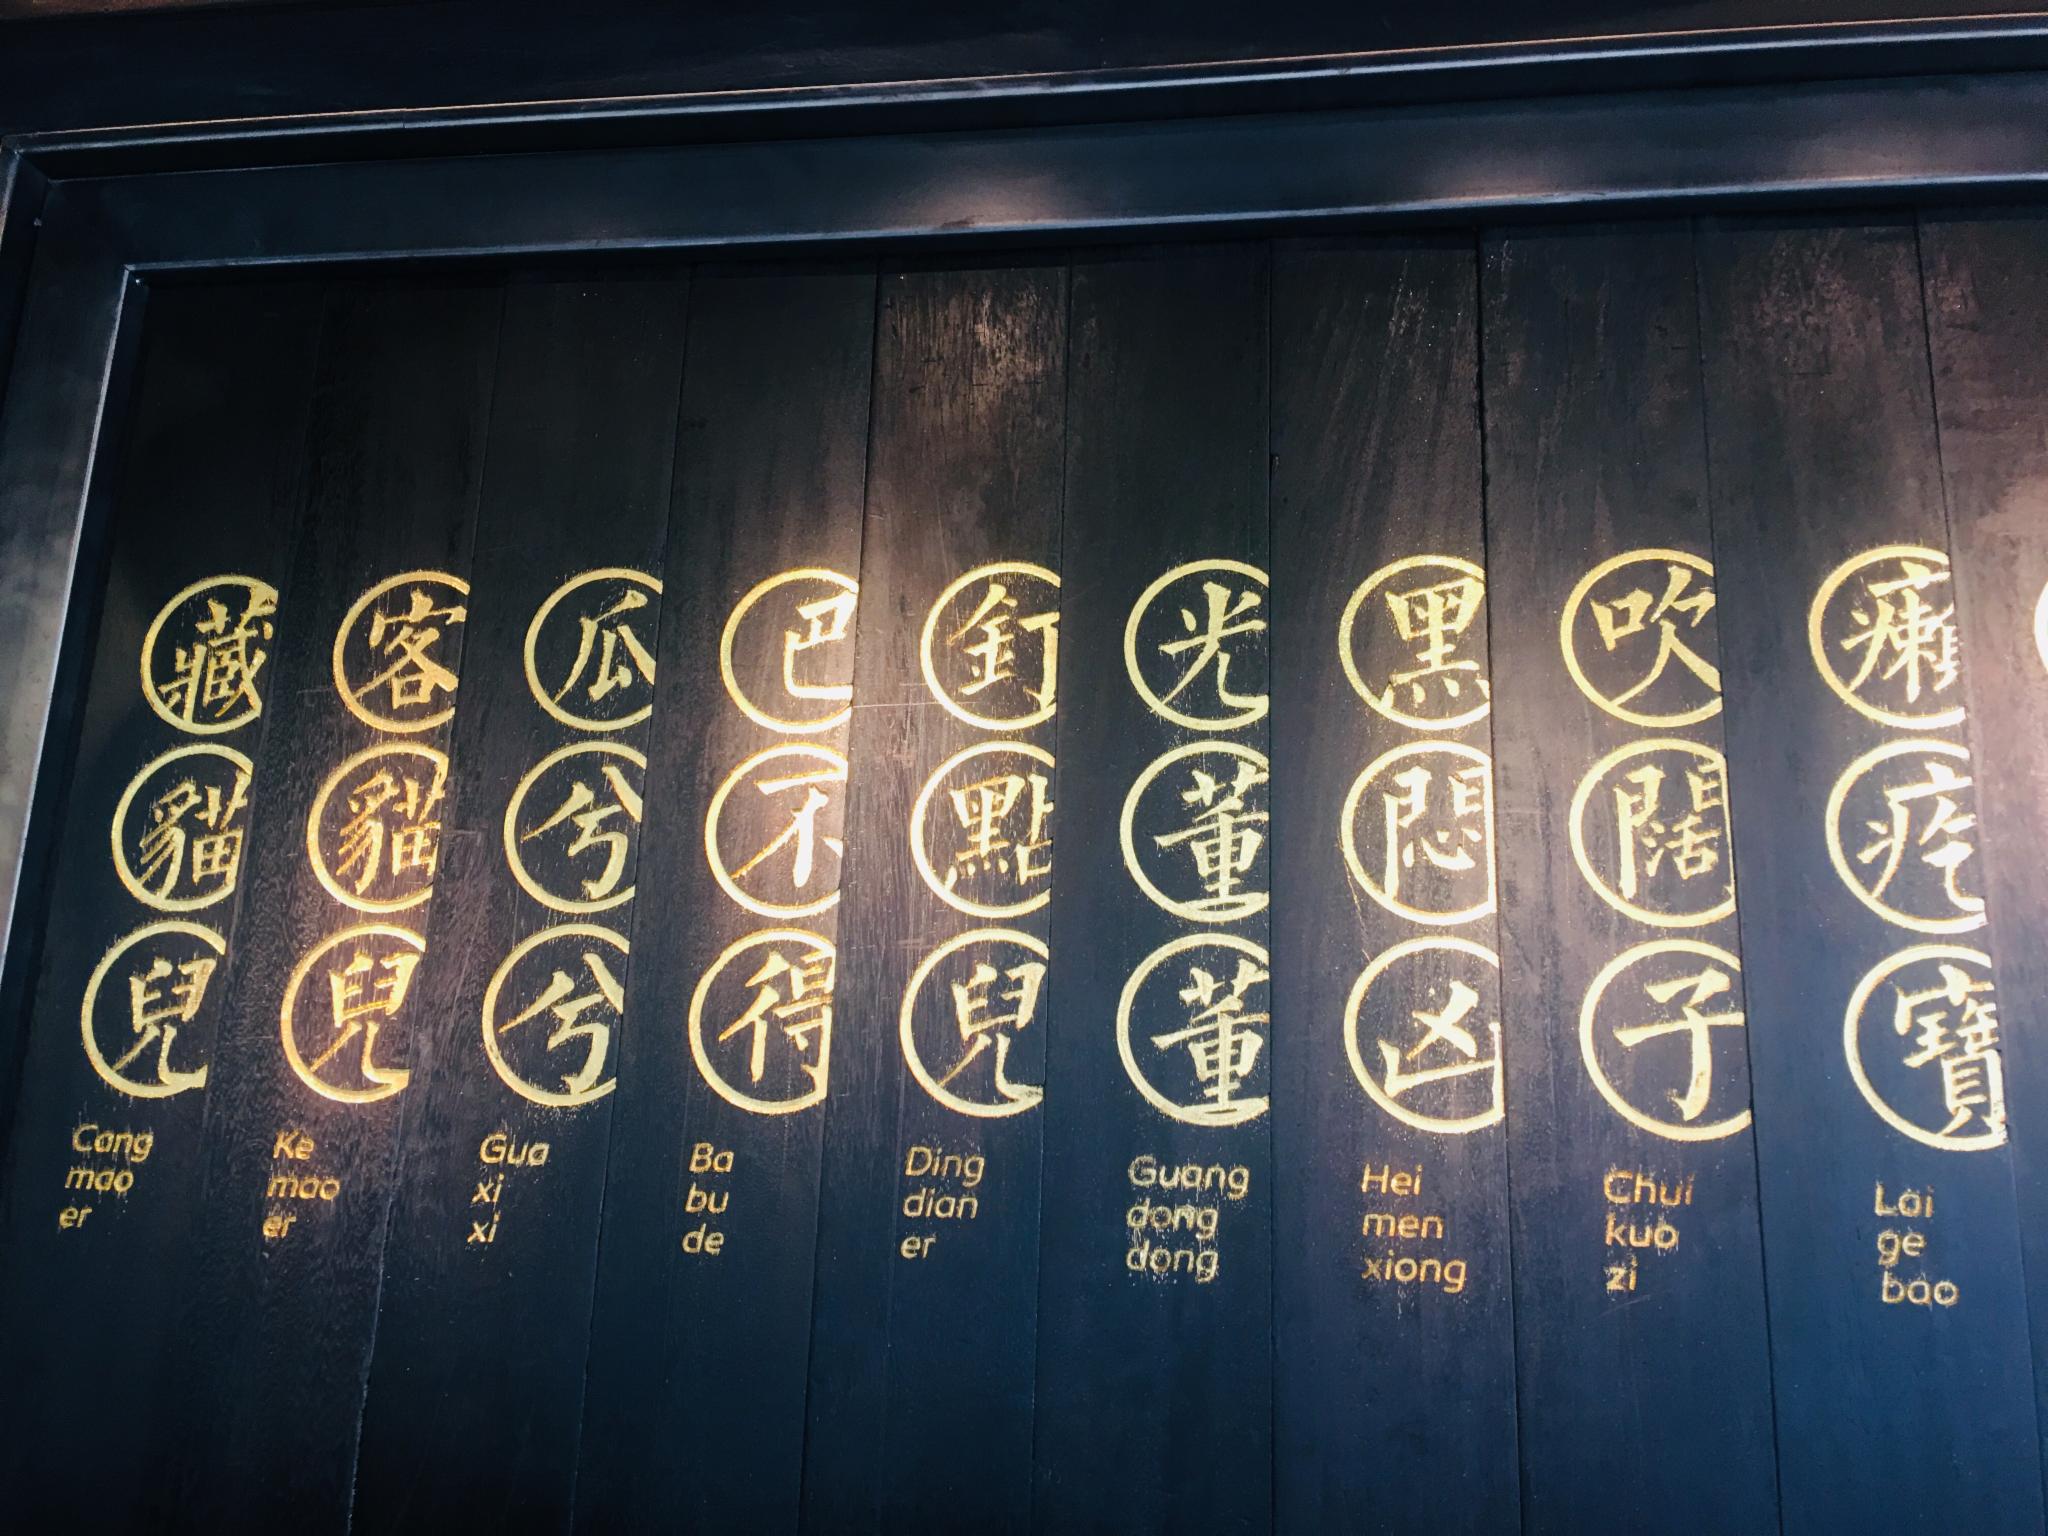 藏貓兒
Cang
mao
er
客貓兒
Ke
mao
er
瓜兮兮
Gua
xi
xi
巴不得
Ba
bu
de
釘點兒
Ding
dian
er
光董董
Guang
dong
dong
黑悶凶
Hei
men
xiong
吹闊子
Chui
kuo
zi
癩疙寶
Lai
ge
bao